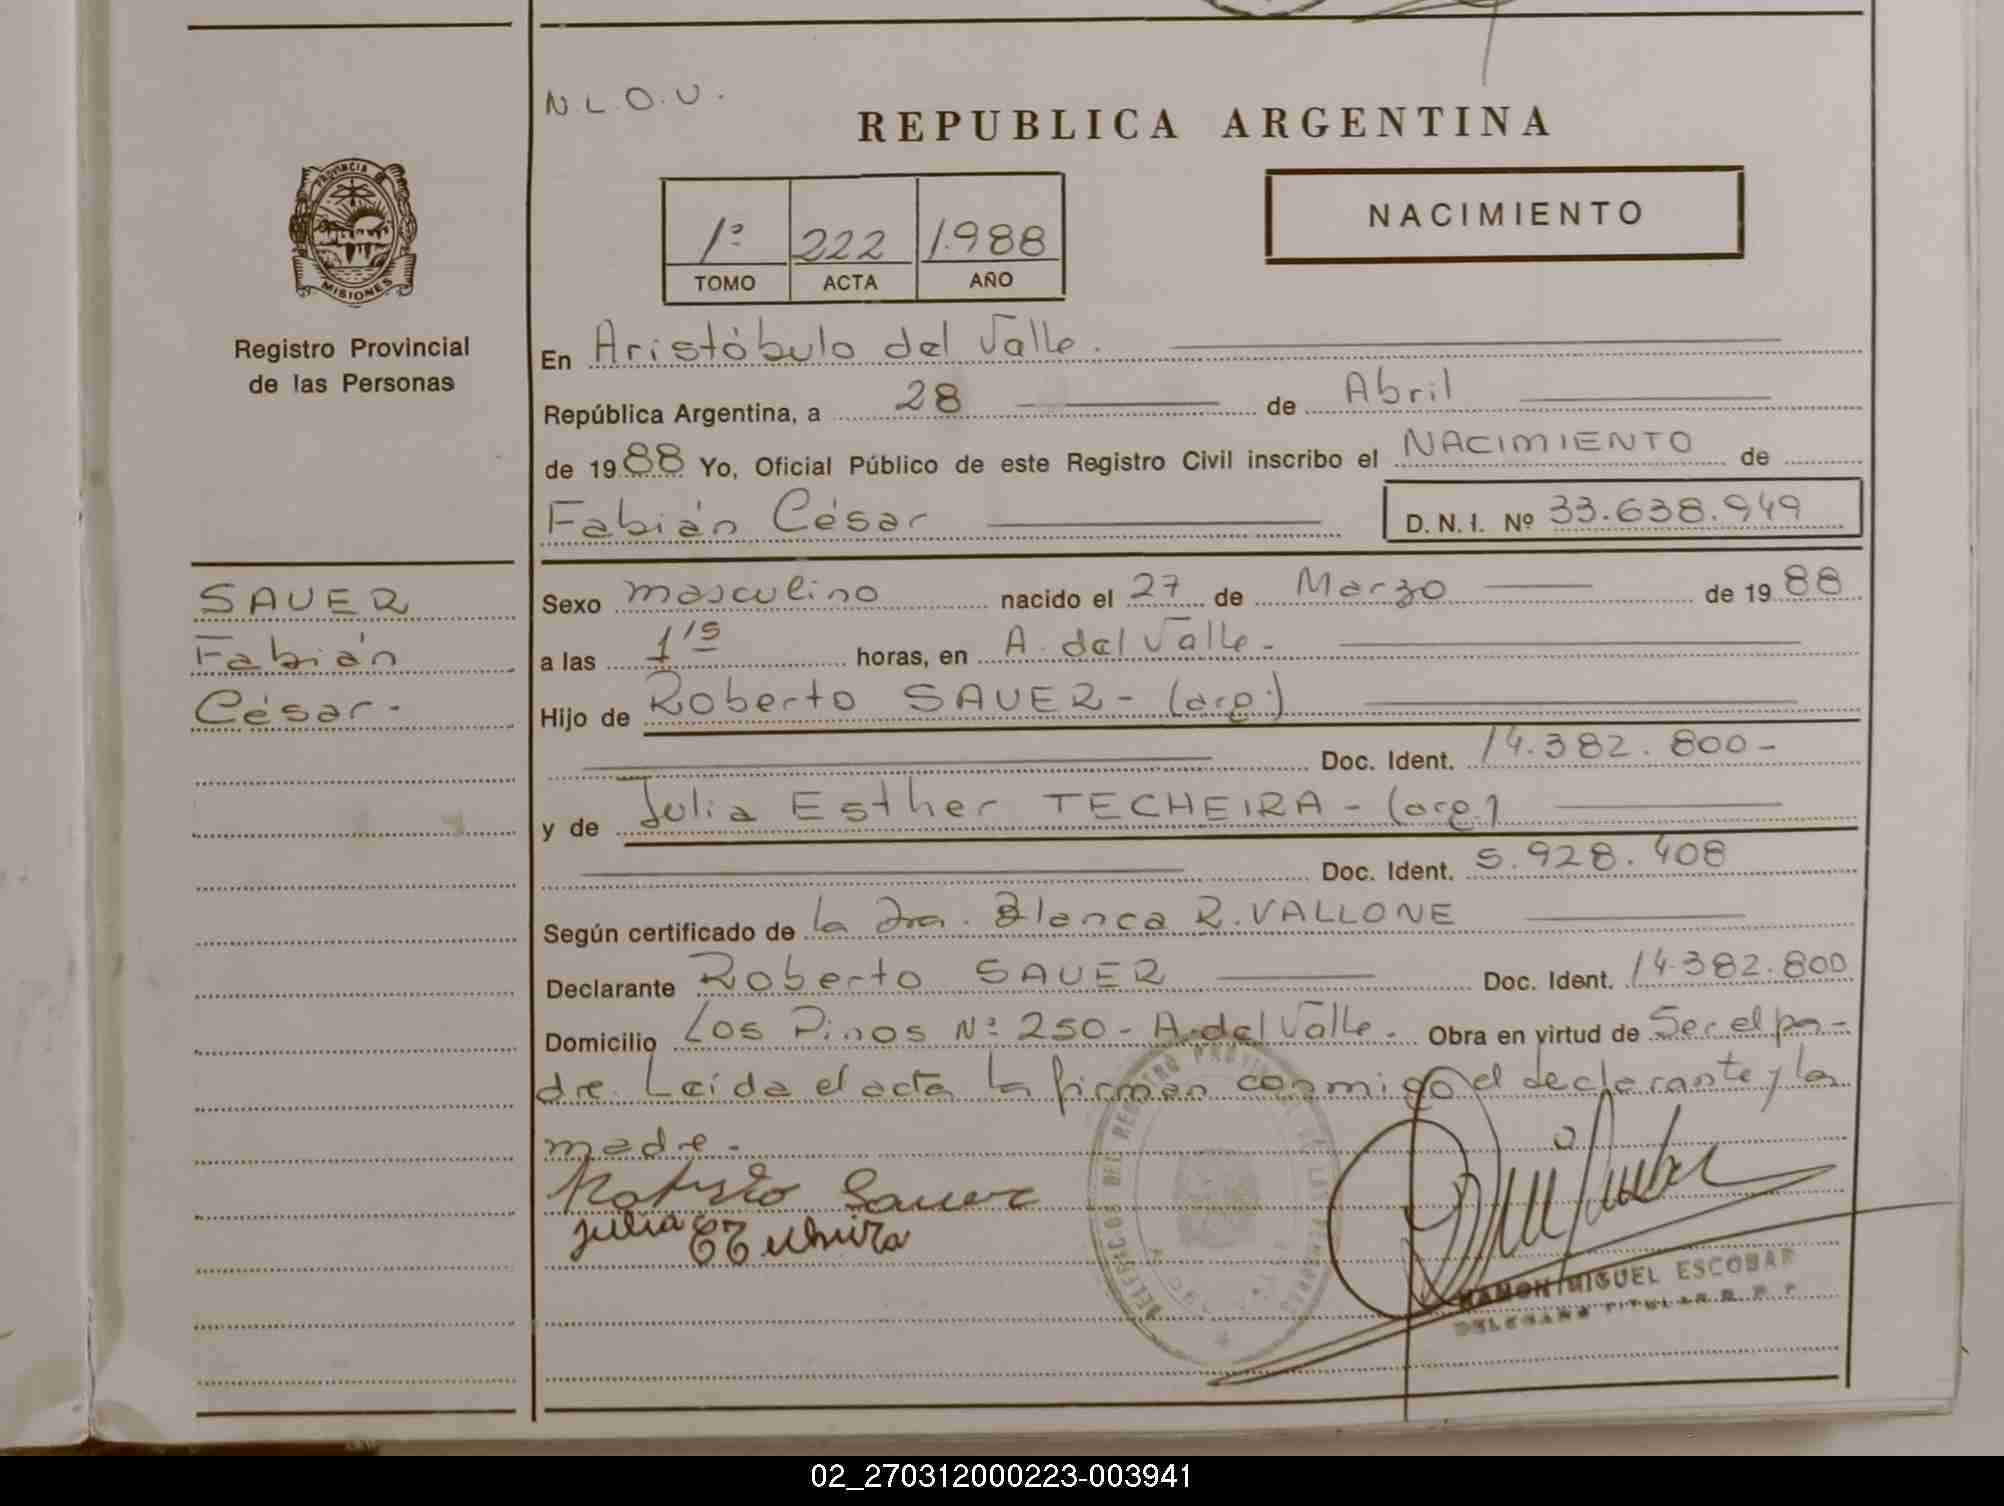 N.L.O.U.
REPUBLICA ARGENTINA
PROVINCIA DE
MISIONES
1º 222 1.988
TOMO ACTA AÑO
NACIMIENTO
Registro Provincial
de las Personas
En Aristóbulo del Valle.
República Argentina, a 28 de Abril
de 1988 Yo, Oficial Público de este Registro Civil inscribo el NACIMIENTO de
Fabián César D.N.I. Nº 33.638.949
SAUER
Fabián
César.-
Sexo masculino nacido el 27 de Marzo de 1988
a las 1'15 horas, en A. del Valle.-
Hijo de Roberto SAUER- (arg.)
Doc. Ident. 14.382.800-
y de Julia Esther TECHEIRA- (arg.)
Doc. Ident. 5.928.408
Según certificado de la Dra. Blanca R. VALLONE
Declarante Roberto SAUER Doc. Ident. 14.382.800
Domicilio Los Pinos Nº 250- A. del Valle.- Obra en virtud de Ser el pa-
dre. Leída el acta la firman conmigo el declarante y la
madre.-
Roberto Sauer
Julia E Techeira
RAMON MIGUEL ESCOBAR
DELEGADO TITULAR R. P. P.
02_270312000223-003941